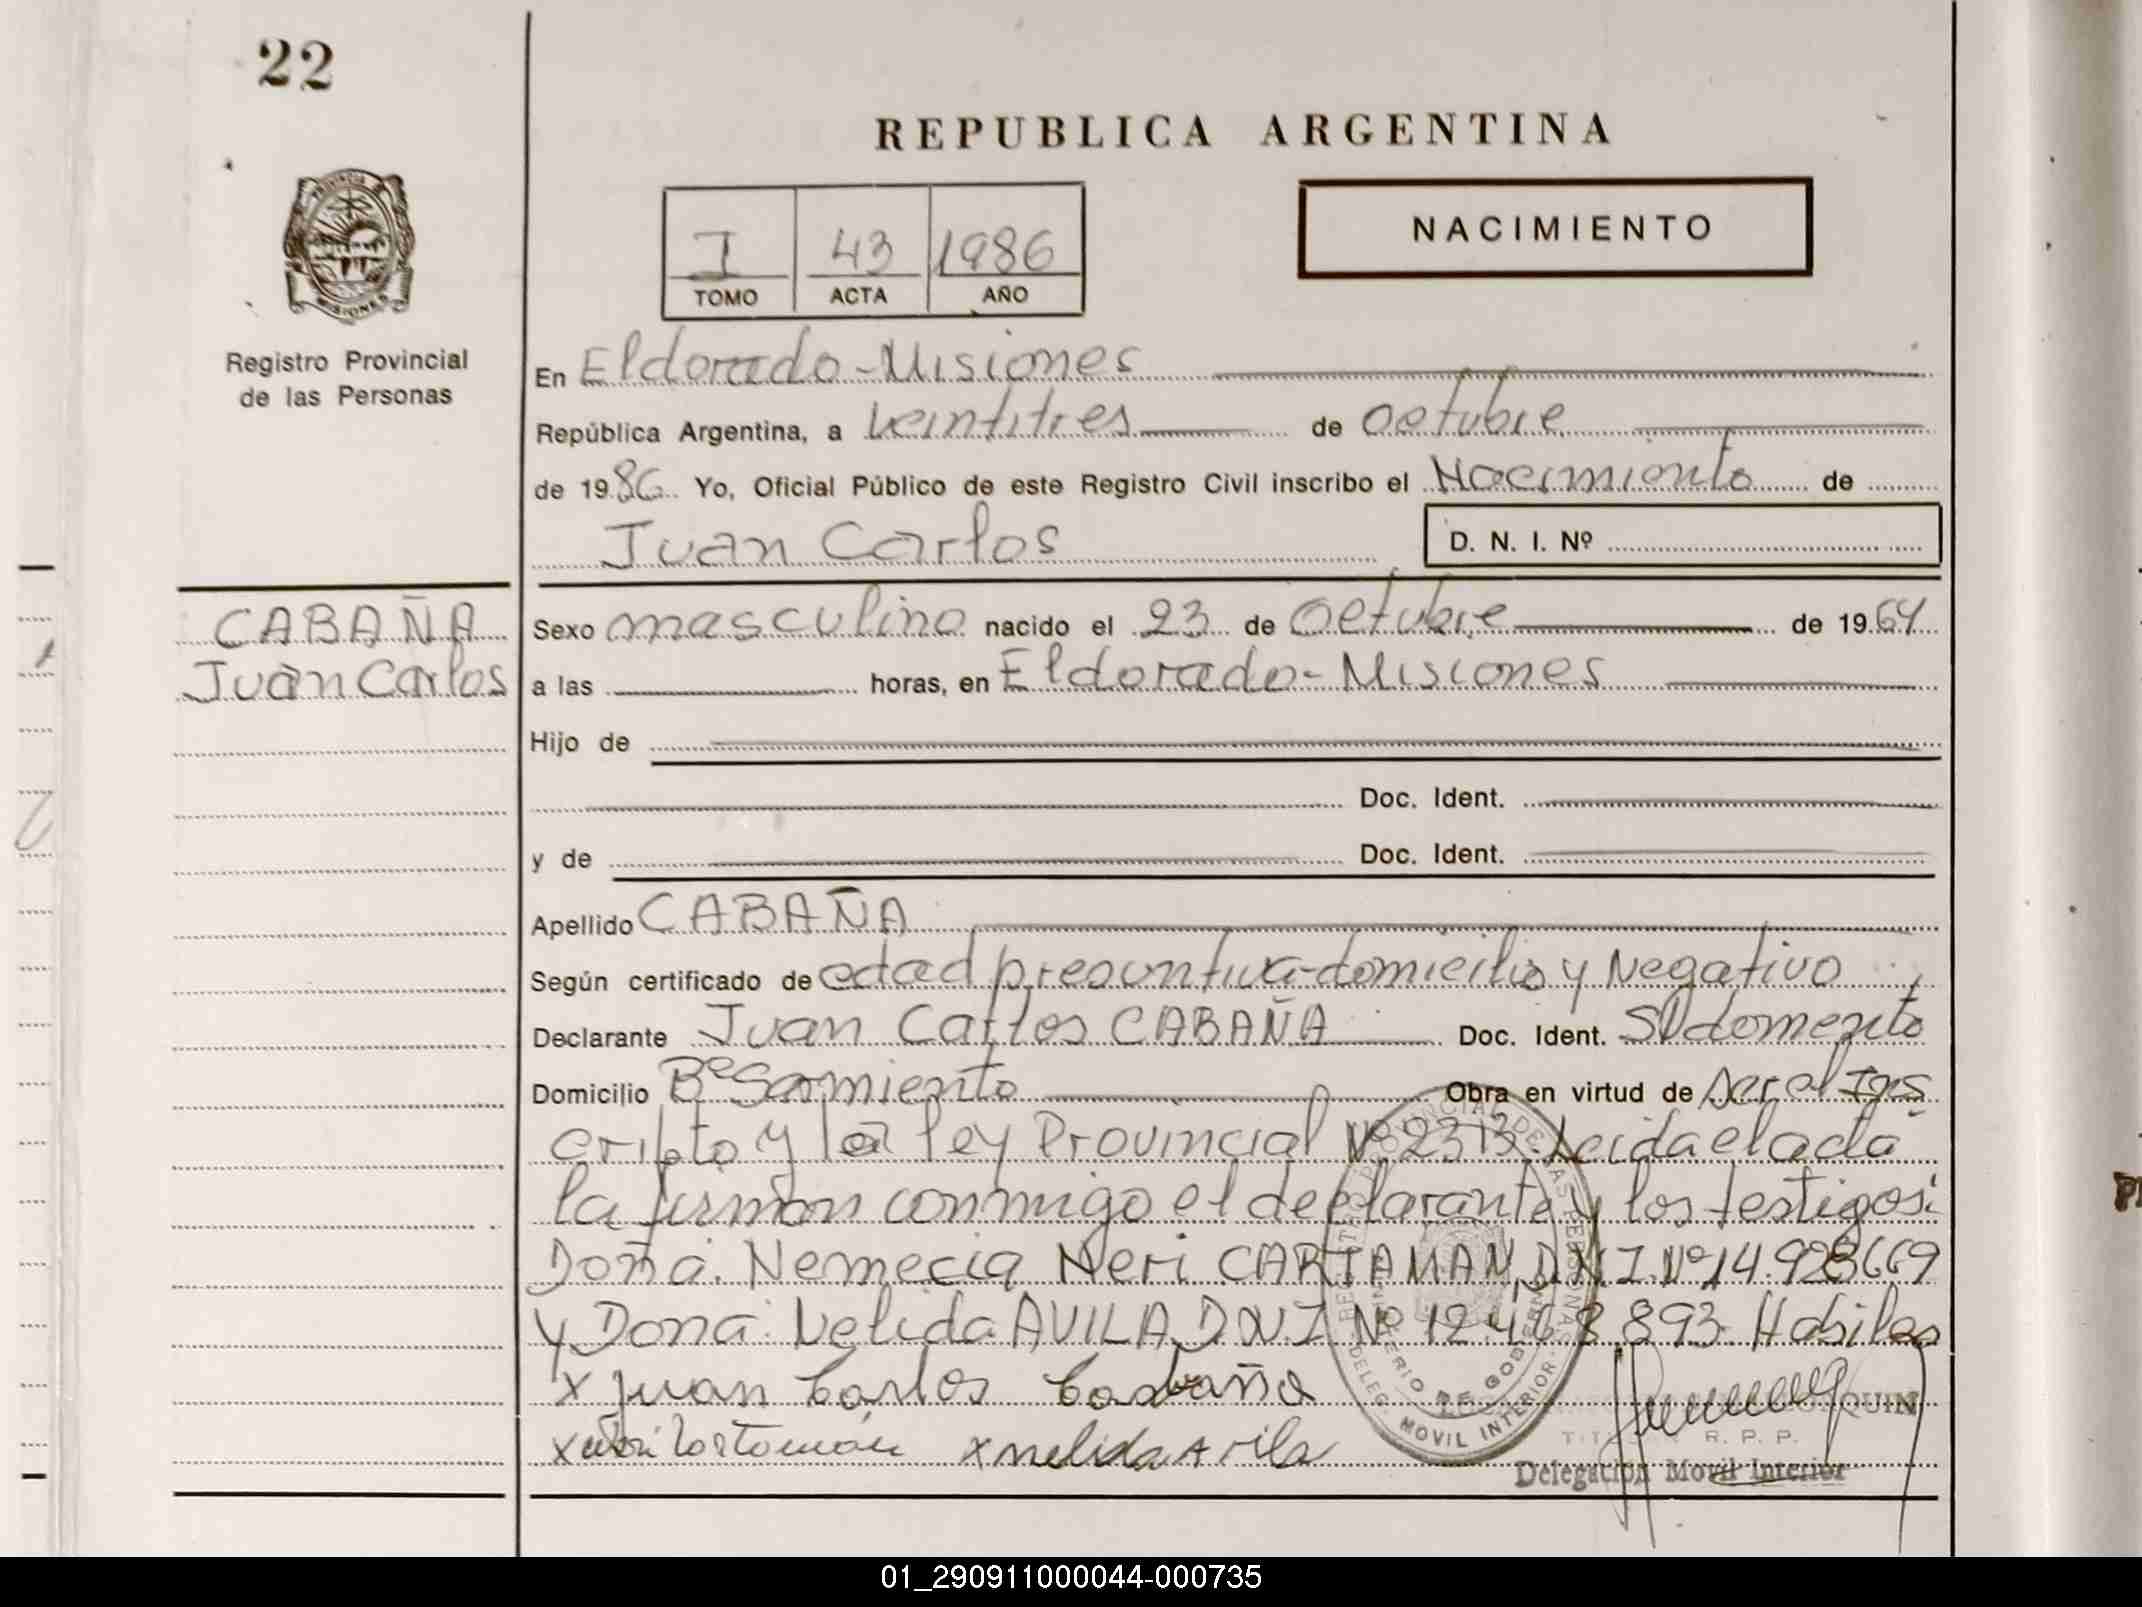 22
REPUBLICA ARGENTINA
NACIMIENTO
I 43 1986
TOMO ACTA AÑO
PROVINCIA
MISIONES
Registro Provincial
de las Personas
En Eldorado-Misiones
República Argentina, a veintitres de Octubre
de 1986 Yo, Oficial Público de este Registro Civil inscribo el Nacimiento de
Juan Carlos D. N. I. Nº
CABAÑA
Juan Carlos
Sexo masculino nacido el 23 de Octubre de 1964
a las horas, en Eldorado-Misiones
Hijo de
Doc. Ident.
y de Doc. Ident.
Apellido CABAÑA
Según certificado de edad presuntiva-domicilio y Negativo
Declarante Juan Carlos CABAÑA Doc. Ident. S/domento
Domicilio Bº Sarmiento Obra en virtud de ser el Ins
cripto y la ley Provincial Nº 2313. Leida el acta
la firman conmigo el declarante y los testigos:
Doña. Nemecia Neri CARTAMAN, DNI. Nº 14.928669
y Doña. Nelida AVILA DNI Nº 12468893. Habiles
x Juan Carlos Cabaña
x x nelida Avila
TITULAR R. P. P.
Delegación Movil Interior
DELEG. MOVIL INTERIOR
01_290911000044-000735